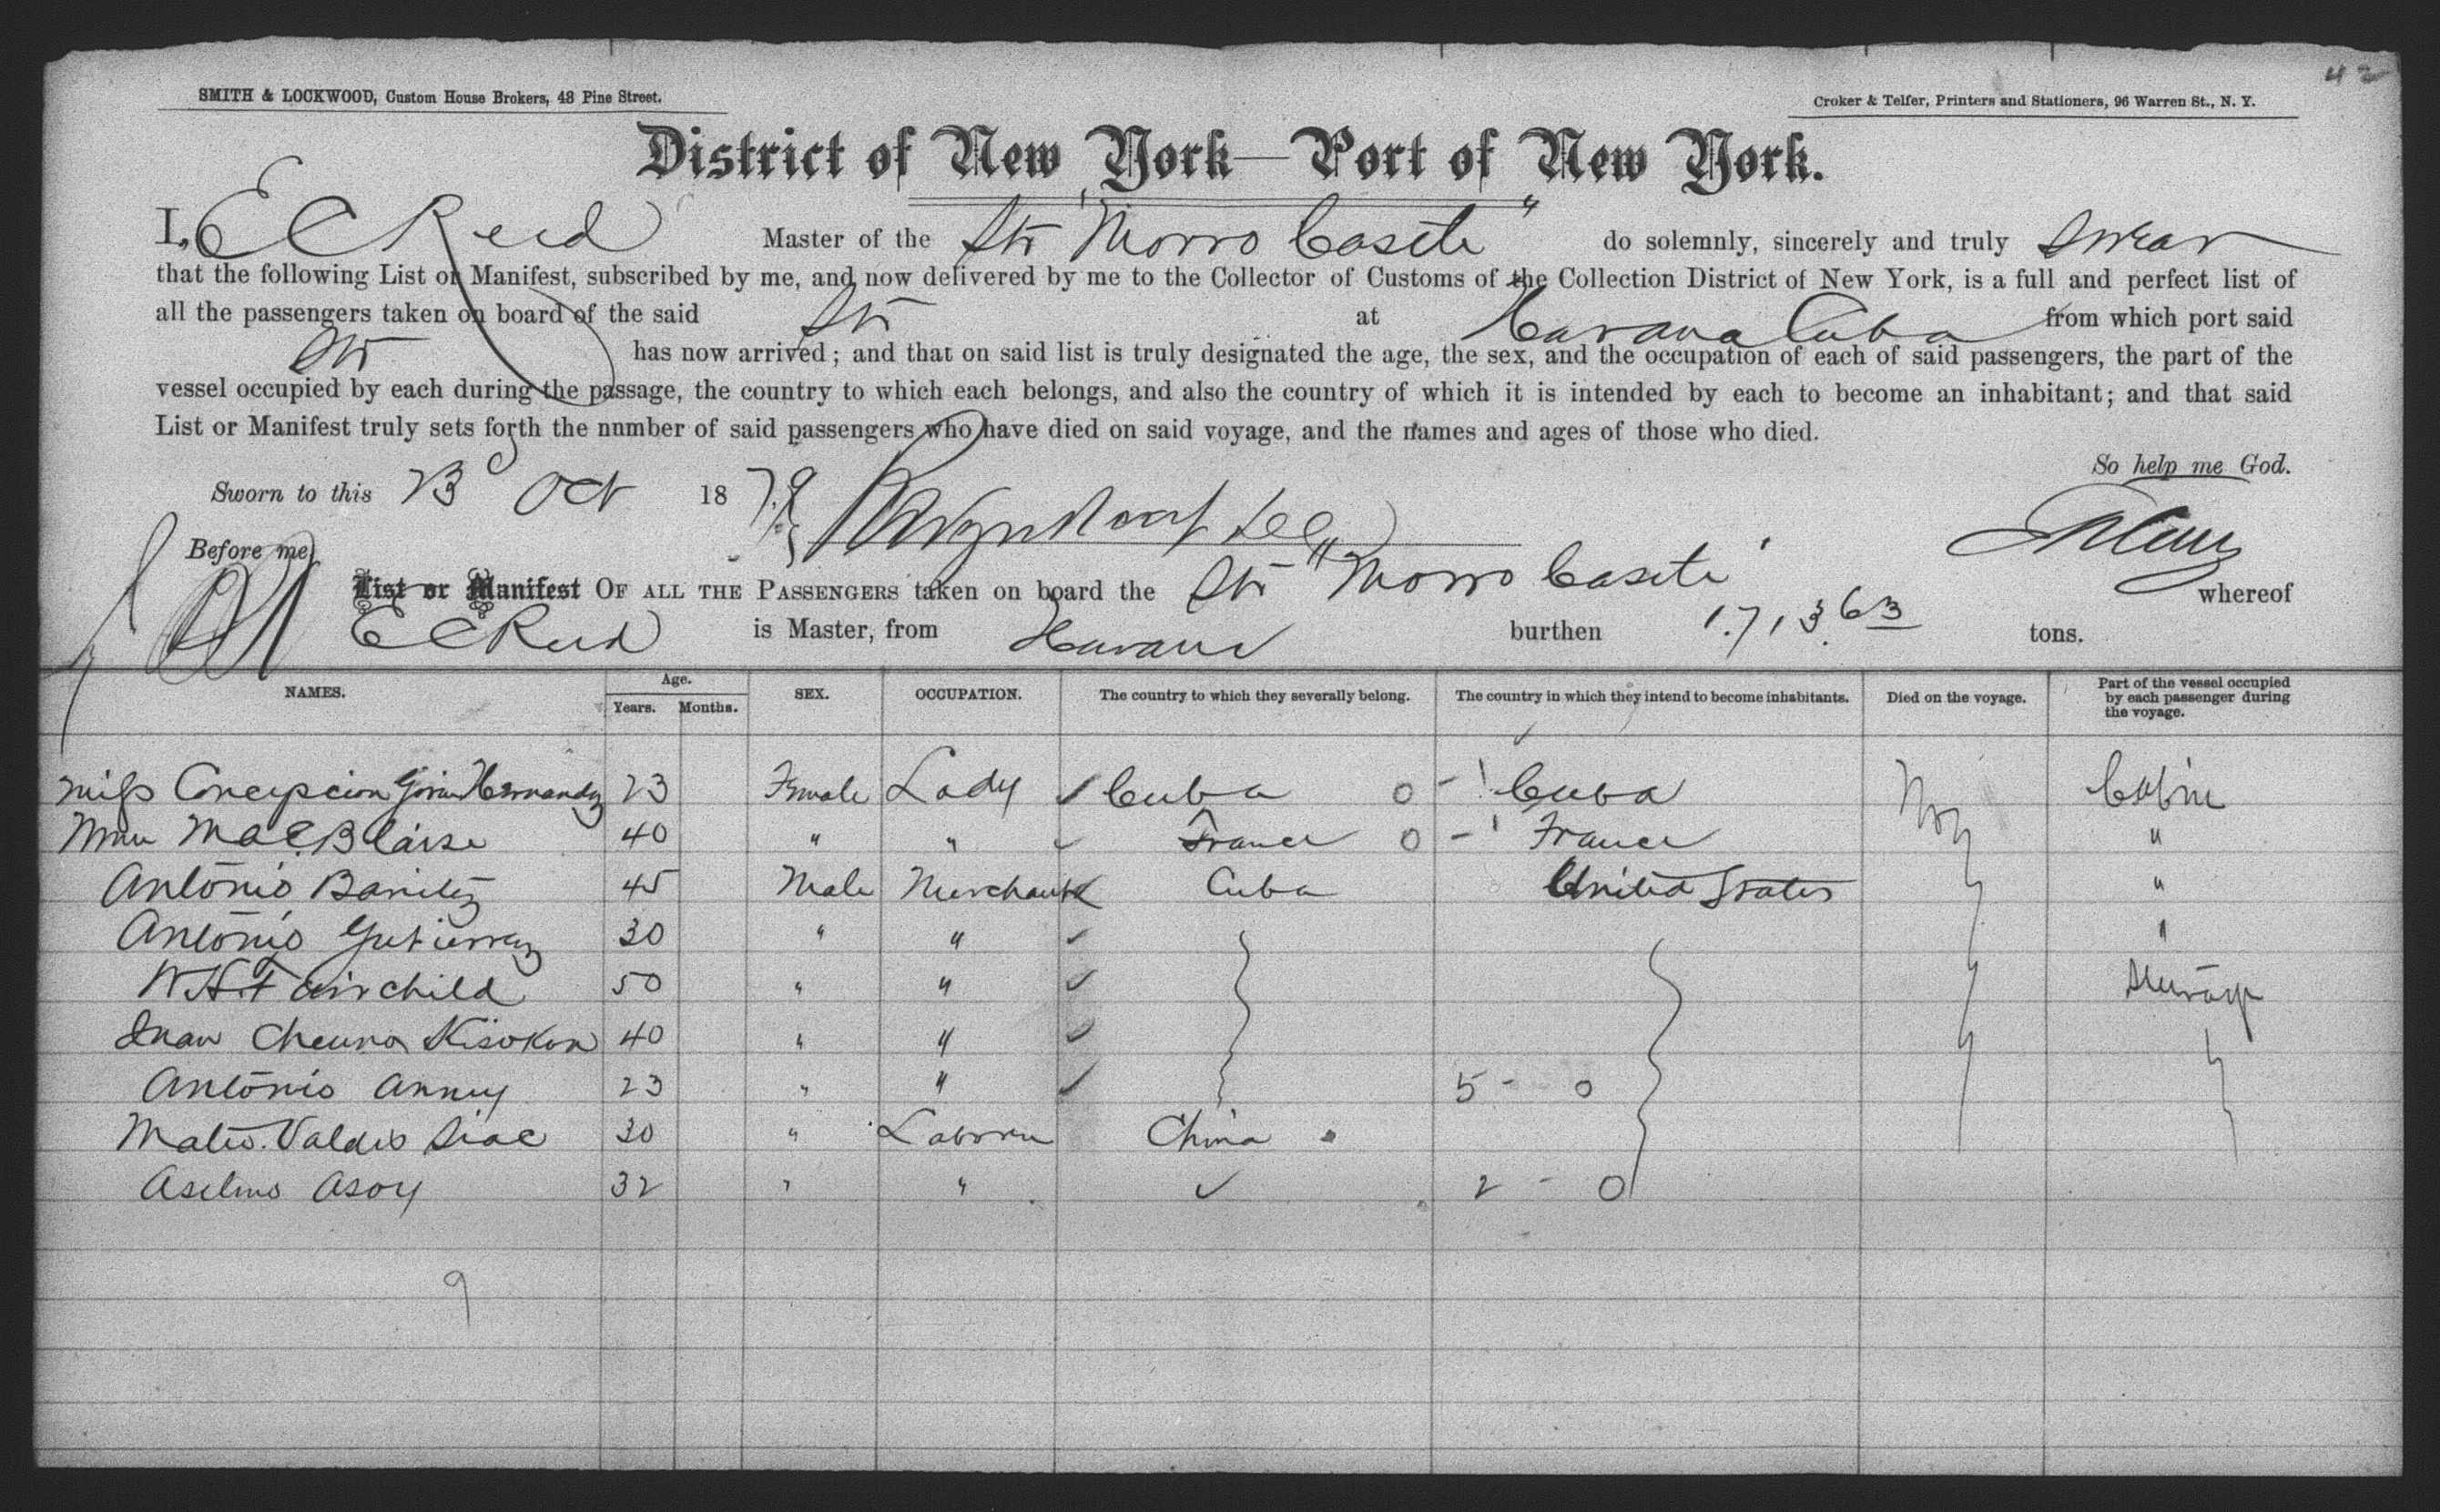 42
SMITH & LOCKWOOD, Custom House Brokers, 48 Pine Street.
Croker & Telfer, Printers and Stationers, 96 Warren St., N. Y.
District of New York—Port of New York.
I, E C Reed Master of the Str "Morro Castle" do solemnly, sincerely and truly swear
that the following List or Manifest, subscribed by me, and now delivered by me to the Collector of Customs of the Collection District of New York, is a full and perfect list of
all the passengers taken on board of the said Str at Havana Cuba from which port said
Str has now arrived; and that on said list is truly designated the age, the sex, and the occupation of each of said passengers, the part of the
vessel occupied by each during the passage, the country to which each belongs, and also the country of which it is intended by each to become an inhabitant; and that said
List or Manifest truly sets forth the number of said passengers who have died on said voyage, and the names and ages of those who died.
So help me God.
Sworn to this 23 Oct 1879
Before me,
List or Manifest OF ALL THE PASSENGERS taken on board the Str "Morro Castle" whereof
E C Reed is Master, from Havana burthen 1.713 63 tons.
NAMES. Age. Years. Months. SEX. OCCUPATION. The country to which they severally belong. The country in which they intend to become inhabitants. Died on the voyage. Part of the vessel occupied by each passenger during the voyage.
Miss Concepcion Hernandez 23 Female Lady ✓ Cuba 0 - 1 Cuba Cabin
Blaise 40 " " ✓ France 0 - 1 France "
Antonio 45 Male Merchant ✓ Cuba United States "
Antonio Gutierrez 30 " " ✓ "
W H Fairchild 50 " " ✓ Steerage
Juan 40 " " ✓
Antonio 23 " " ✓ 5 - 0
Mateo Valdes 30 " Laborer China
Aselmo Asoy 32 " " ✓ 2 - 0
9